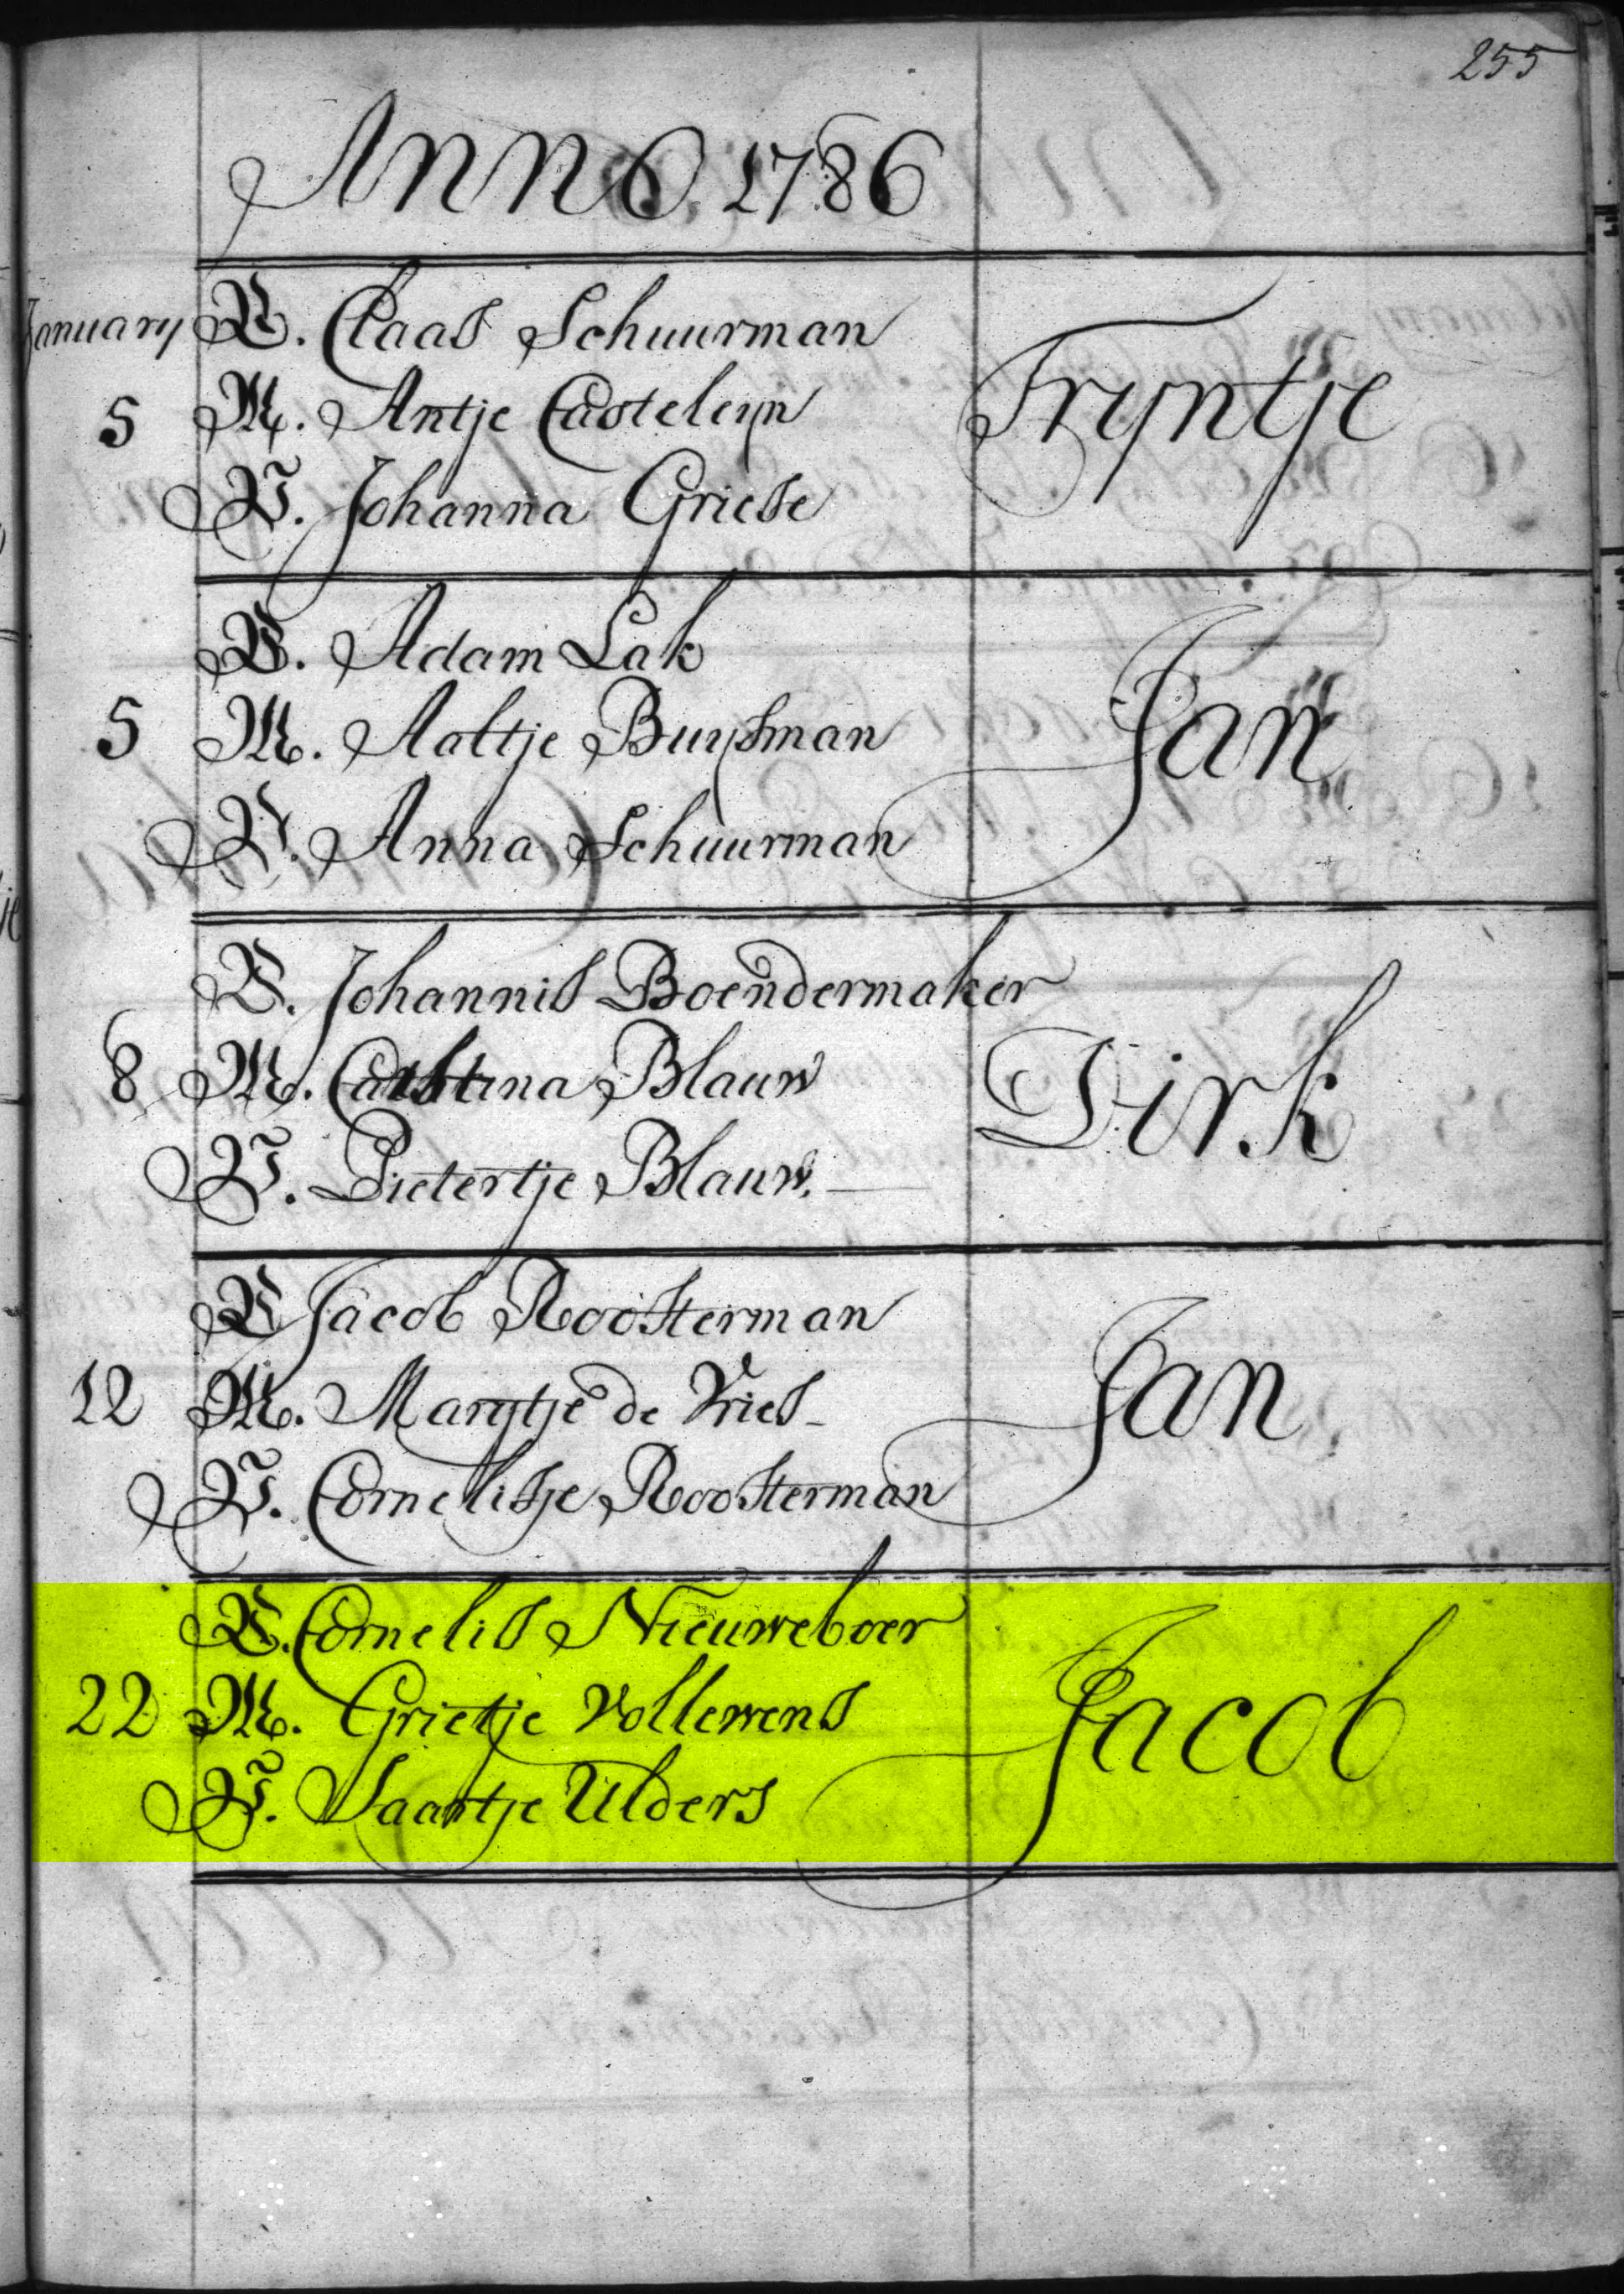 255
Anno. 1786
January V. Claas Schuurman
5 M. Antje Casteleyn Tryntje
T. Johanna Griese
V. Adam Lak
5 M. Aaltje Buysman Jan
T. Anna Schuurman
V. Johannis Boendermaker
8 M. Blauw Dirk
T. Pietertje Blauw.
V Jacob Roosterman
12 M. Marytje de Vries Jan
T. Cornelisje Roosterman
V. Cornelis Nieuweboer
22 M. Grietje Vollewens Jacob
T. Saartje Ulders